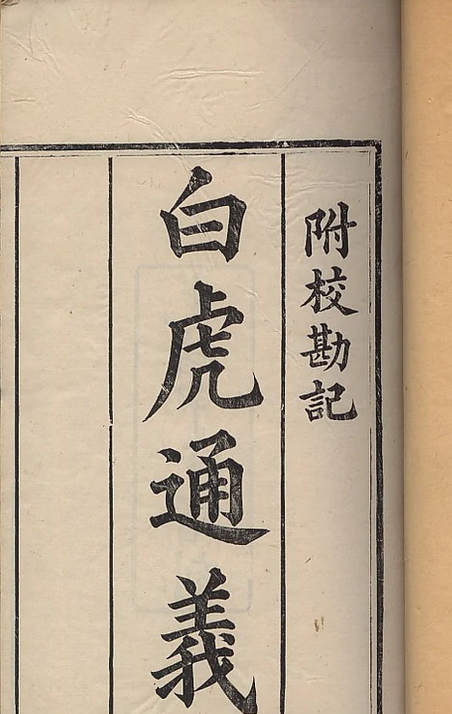 附校勘記
白虎通義